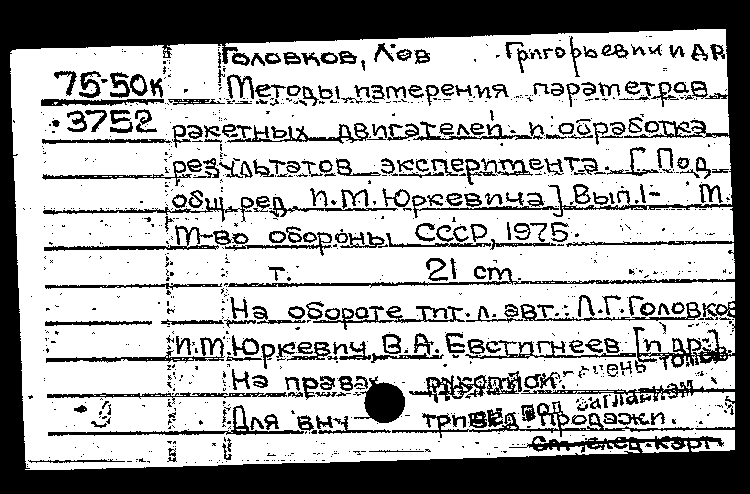 Головков, Лев Григорьевич и др.
75-50к Методы измерения параметров
3752 ракетных двигателей и обработка
результатов эксперимента. [Под
общ. ред. И.М. Юркевича] Вып. 1- М.
М-во обороны СССР, 1975.
т. 21 cm.
На обороте тит. л. авт.: Л.Г. Головков
И.М. Юркевич, В.А. Евстигнеев [и др.]
На правах рукописи.
Для вну продажи.
под заглавием
См. след. карт.